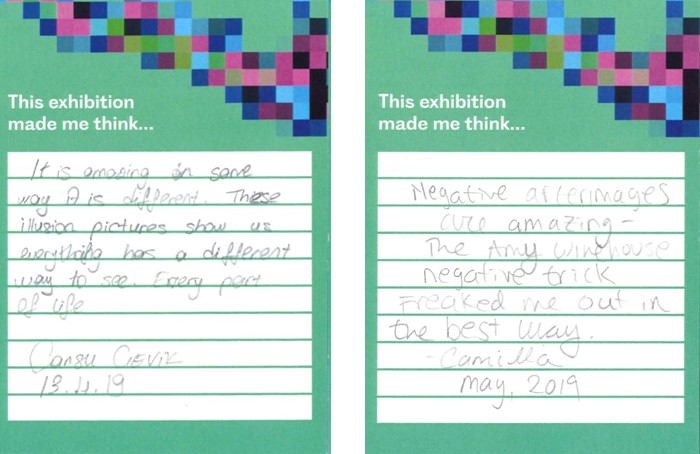 This exhibition
made me think...
It is amazing in same
way it is different. These
illusion pictures show us
everything has a different
way to see. Every part
of life
Cansu CEVİK
13.4.19
This exhibition
made me think...
Negative afterimages
are amazing -
The Amy Winehouse
negative trick
Freaked me out in
the best way.
- Camilla
may, 2019